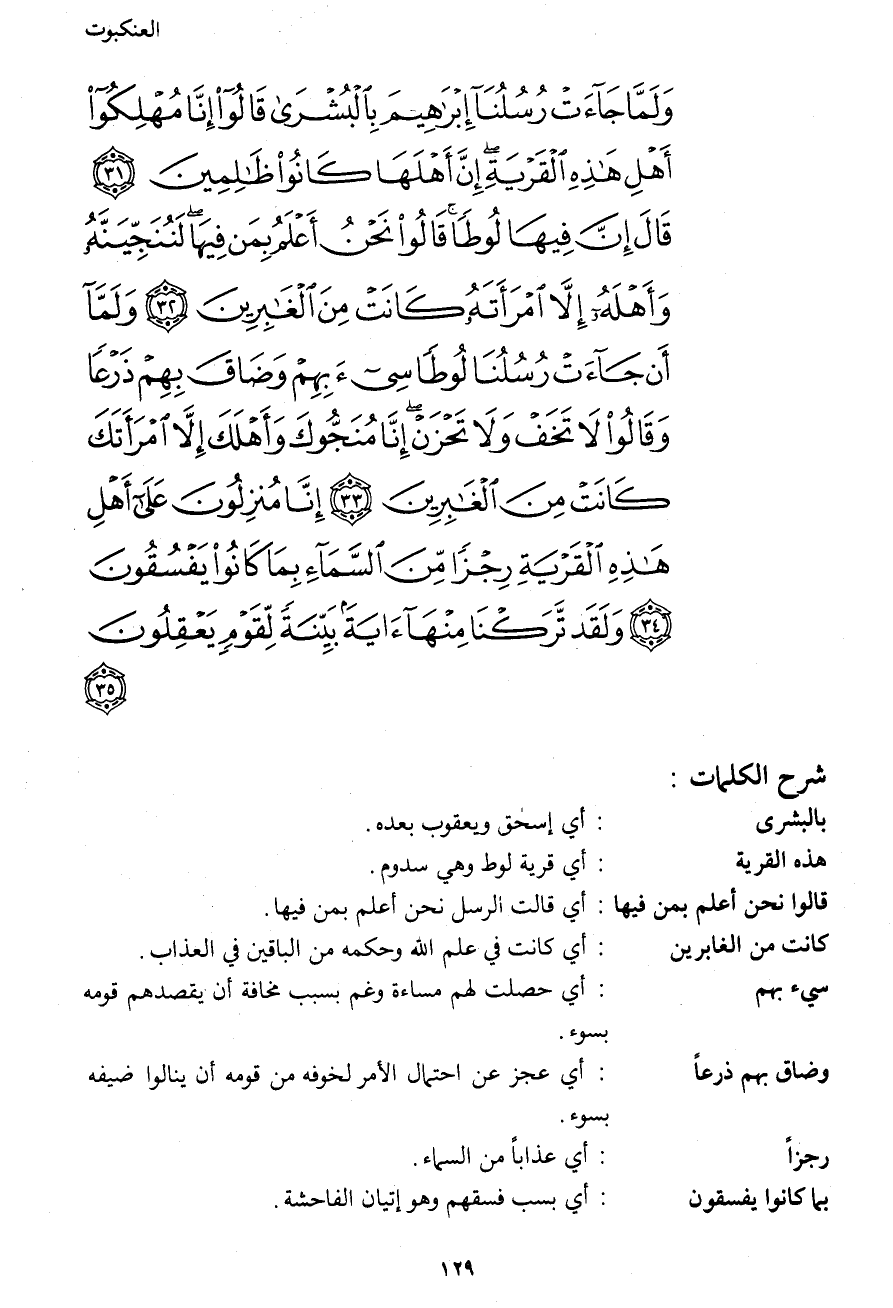 العنكبوت
وَلَمَّا جَآءَتْ رُسُلُنَآ إِبْرَٰهِيمَ بِٱلْبُشْرَىٰ قَالُوٓا۟ إِنَّا مُهْلِكُوٓا۟
أَهْلِ هَٰذِهِ ٱلْقَرْيَةِ ۖ إِنَّ أَهْلَهَا كَانُوا۟ ظَٰلِمِينَ ٣١
قَالَ إِنَّ فِيهَا لُوطًا ۚ قَالُوا۟ نَحْنُ أَعْلَمُ بِمَن فِيهَا ۖ لَنُنَجِّيَنَّهُۥ
وَأَهْلَهُۥٓ إِلَّا ٱمْرَأَتَهُۥ كَانَتْ مِنَ ٱلْغَٰبِرِينَ ٣٢ وَلَمَّآ
أَن جَآءَتْ رُسُلُنَا لُوطًا سِىٓءَ بِهِمْ وَضَاقَ بِهِمْ ذَرْعًا
وَقَالُوا۟ لَا تَخَفْ وَلَا تَحْزَنْ ۖ إِنَّا مُنَجُّوكَ وَأَهْلَكَ إِلَّا ٱمْرَأَتَكَ
كَانَتْ مِنَ ٱلْغَٰبِرِينَ ٣٣ إِنَّا مُنزِلُونَ عَلَىٰٓ أَهْلِ
هَٰذِهِ ٱلْقَرْيَةِ رِجْزًا مِّنَ ٱلسَّمَآءِ بِمَا كَانُوا۟ يَفْسُقُونَ
٣٤ وَلَقَد تَّرَكْنَا مِنْهَآ ءَايَةًۢ بَيِّنَةً لِّقَوْمٍ يَعْقِلُونَ
٣٥
شرح الكلمات :
بالبشرى : أي إسحٰق ويعقوب بعده.
هذه القرية : أي قرية لوط وهي سدوم.
قالوا نحن أعلم بمن فيها : أي قالت الرسل نحن أعلم بمن فيها.
كانت من الغابرين : أي كانت في علم الله وحكمه من الباقين في العذاب.
سيء بهم : أي حصلت لهم مساءة وغم بسبب مخافة أن يقصدهم قومه
بسوء.
وضاق بهم ذرعاً : أي عجز عن احتمال الأمر لخوفه من قومه أن ينالوا ضيفه
بسوء.
رجزاً : أي عذاباً من السماء.
بما كانوا يفسقون : أي بسب فسقهم وهو إتيان الفاحشة.
١٢٩